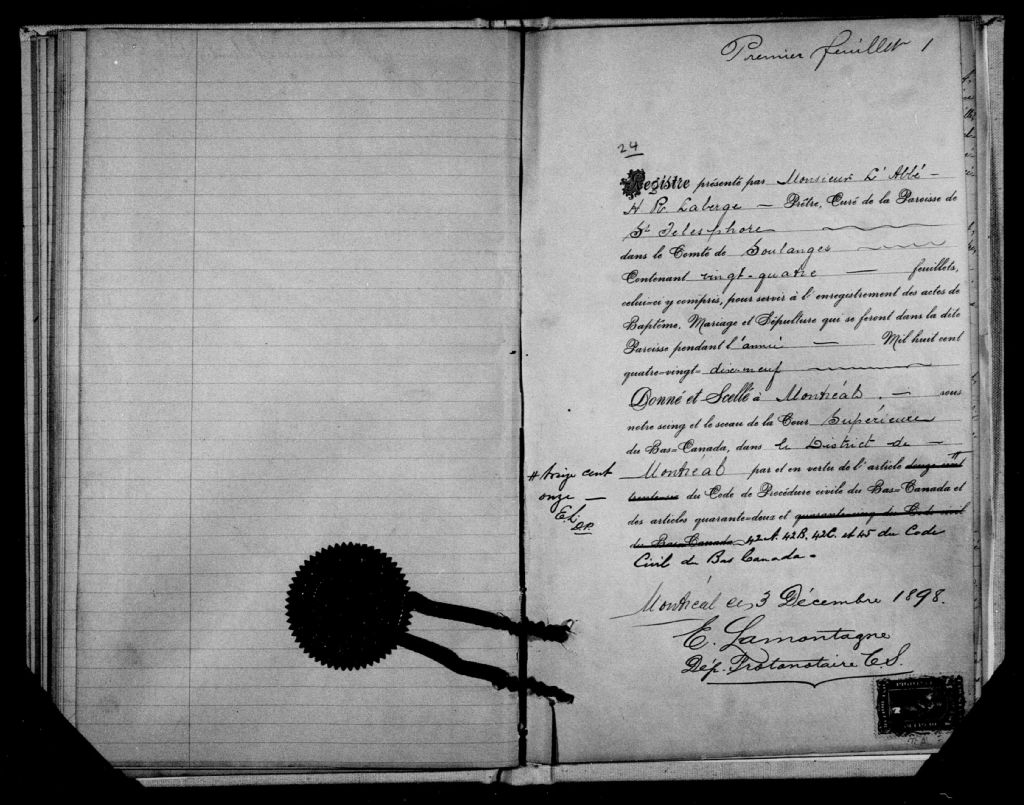 Premier feuillet 1
24
Registre présenté par Monsieur L'Abbé —
H Rt Laberge — Prêtre, Curé de la Paroisse de
St Telesphore
dans le Comté de Soulanges
Contenant vingt-quatre — feuillets,
celui-ci y compris, pour servir à l'enregistrement des actes de
Baptême, Mariage et Sépulture qui se feront dans la dite
Paroisse pendant l'année — Mil huit cent
quatre-vingt-dix-neuf
Donné et Scellé à Montréal. — sous
notre seing et le sceau de la Cour Supérieure
du Bas-Canada, dans le District de —
Montréal par et en vertu de l'article douze cent #
trente-six du Code de Procédure civile du Bas-Canada et
des articles quarante-deux et quarante-cinq du Code civil
du Bas-Canada 42A. 42B. 42C. et 45 du Code
Civil du Bas Canada.
# treize cent
onze —
E.L.
D.P.
Montréal ce 3 Décembre 1898.
E. Lamontagne
Dép. Protonotaire C.S.